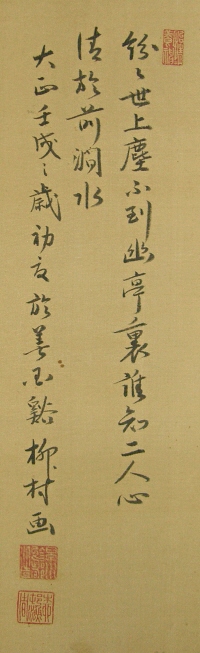 紛々世上塵不到幽亭裏誰知二人心
清於前澗水
大正壬戌之歳初夏於善西谿柳村画